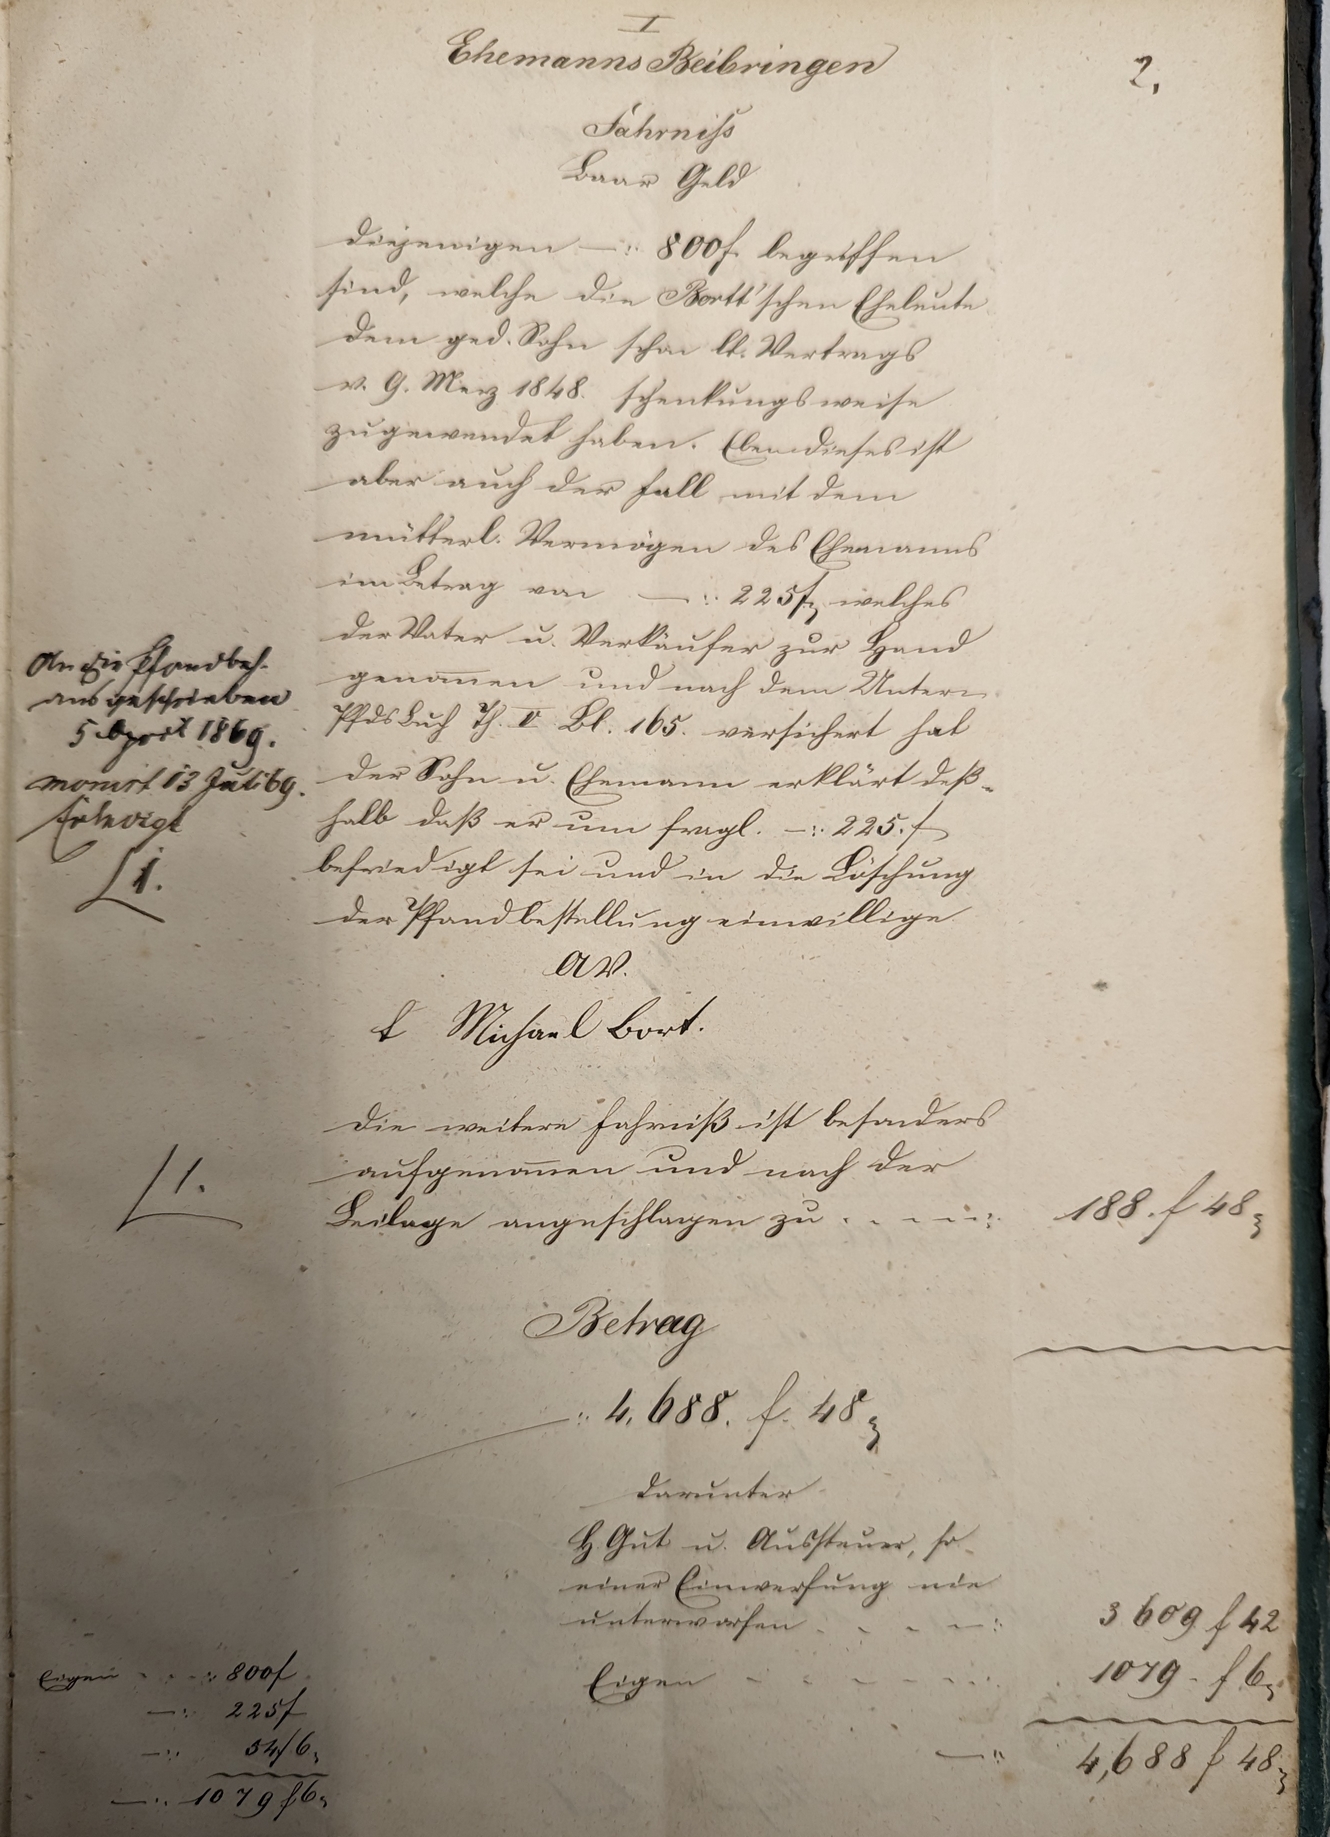 I
Ehemanns Beibringen
2.
Fahrniß
Baar Geld
diejenigen —: 800 f. begriffen
sind, welche die Bortt'schen Eheleute
dem ged. Sohn schon lt. Vertrags
v. 9. Merz 1848. schenkungsweise
zugewendet haben. Ebendieses ist
aber auch der Fall mit dem
mütterl. Vermögen des Ehemanns
im Betrag von —: 225 f, welches
der Vater u. Verkäufer zur Hand
genommen und nach dem Unter-
Pfdsbuch Th. V Bl. 165. versichert hat
der Sohn u. Ehemann erklärt deß-
halb daß er um fragl. —: 225. f
befriedigt sei und in die Löschung
der Pfandbestellung einwillige
An die Pfandbeh.
ausgeschrieben
5 April 1869.
monirt 13 Juli 69.
Erledigt
1.
AV.
t Michael Bort.
Die weitere Fahrniß ist besonders
aufgenommen und nach der
Beilage angeschlagen zu . . — —: 188. f 48
1.
Betrag
—: 4,688. f. 48
darunter
H Gut u. Aussteuer, so
einer Einwerfung nie
unterworfen . . . —: 3609 f 42
Eigen - - - - - —: 1079 - f 6
—: 4,688 f 48
Eigen - - -: 800 f
—: 225 f
—: 54 f 6
—: 1079 f 6